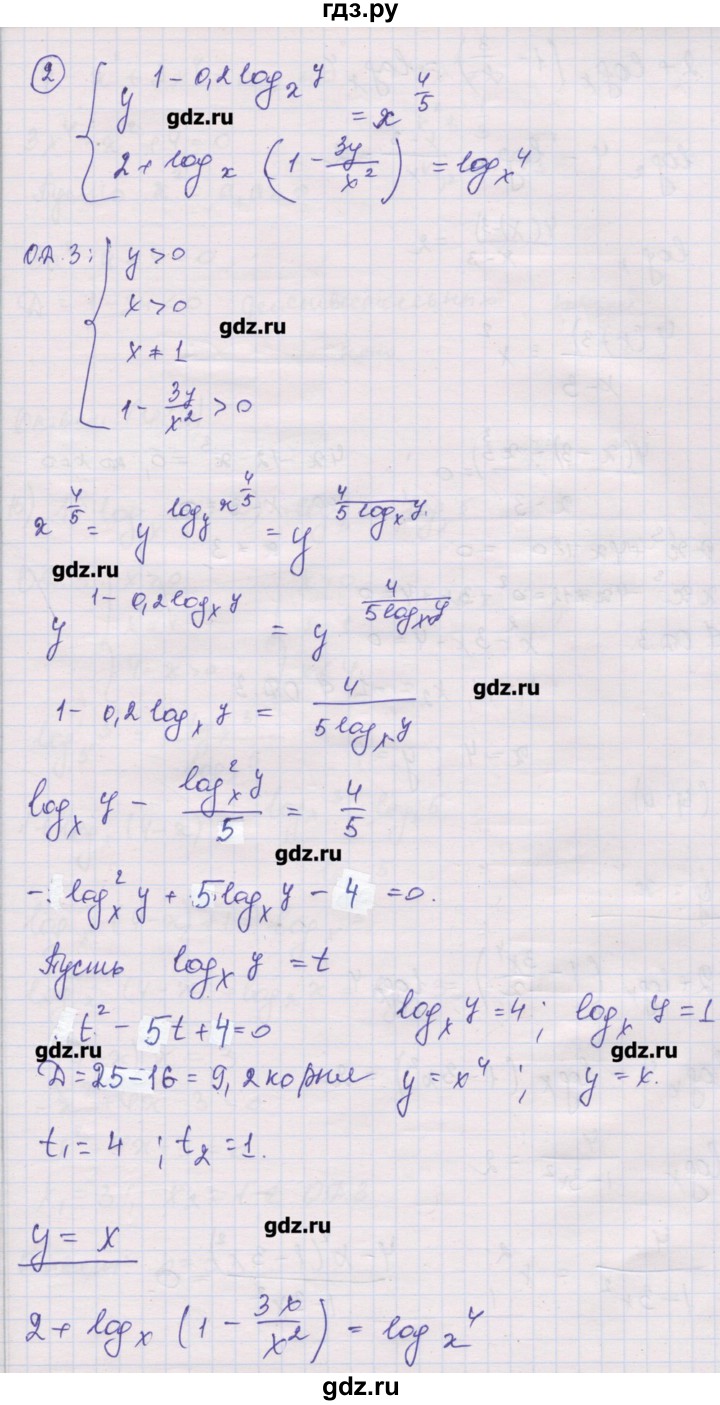 гдз.ру
② { y^(1 - 0,2 log_x y) = x^(4/5)
gdz.ru
2 + log_x (1 - 3y/x²) = log_x 4
ОДЗ: { y > 0
x > 0
gdz.ru
x ≠ 1
1 - 3y/x² > 0
x^(4/5) = y^(log_y x^(4/5)) = y^(4/(5 log_x y)).
gdz.ru
y^(1 - 0,2 log_x y) = y^(4/(5 log_x y))
gdz.ru
1 - 0,2 log_x y = 4/(5 log_x y)
log_x y - log_x² y/5 = 4/5
gdz.ru
- log_x² y + 5 log_x y - 4 = 0.
Пусть log_x y = t
t² - 5t + 4 = 0 log_x y = 4 ; log_x y = 1
gdz.ru gdz.ru
D = 25 - 16 = 9, 2 корня y = x⁴ ; y = x.
t₁ = 4 ; t₂ = 1.
gdz.ru
y = x
2 + log_x (1 - 3x/x²) = log_x 4
gdz.ru